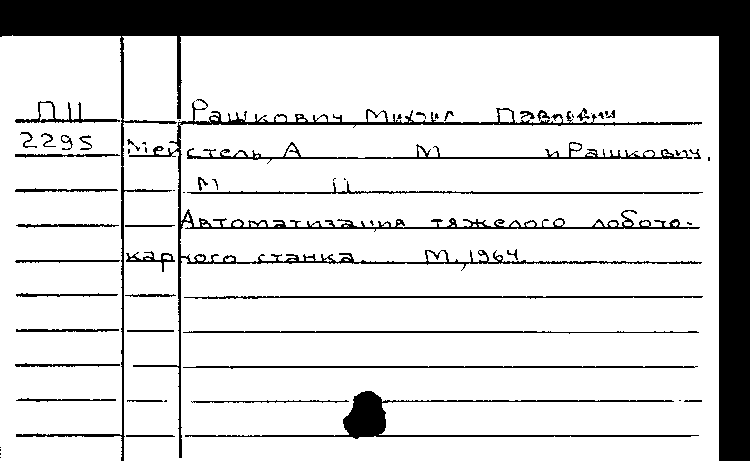 П11 Рашкович, Михаил Павлович
2295 Мейстель, А М и Рашкович,
М П
Автоматизация тяжелого лобото-
карного станка. М., 1964.